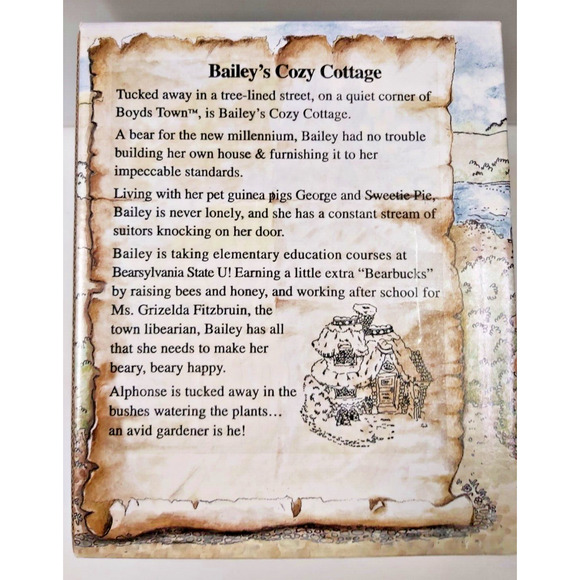 Bailey's Cozy Cottage
Tucked away in a tree-lined street, on a quiet corner of
Boyds Town™, is Bailey's Cozy Cottage.
A bear for the new millennium, Bailey had no trouble
building her own house & furnishing it to her
impeccable standards.
Living with her pet guinea pigs George and Sweetie Pie,
Bailey is never lonely, and she has a constant stream of
suitors knocking on her door.
Bailey is taking elementary education courses at
Bearsylvania State U! Earning a little extra “Bearbucks”
by raising bees and honey, and working after school for
Ms. Grizelda Fitzbruin, the
town libearian, Bailey has all
that she needs to make her
beary, beary happy.
Alphonse is tucked away in the
bushes watering the plants…
an avid gardener is he!